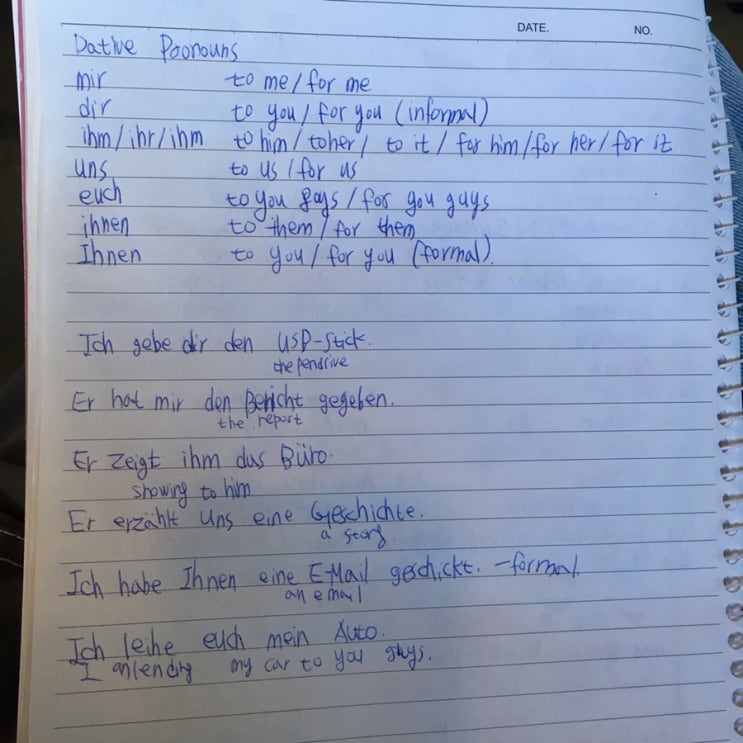 DATE. NO.
Dative Pronouns
mir to me / for me
dir to you / for you (informal)
ihm / ihr / ihm to him / to her / to it / for him / for her / for it
uns to us / for us
euch to you guys / for you guys
ihnen to them / for them
Ihnen to you / for you (formal).
Ich gebe dir den USB-Stick.
the pendrive
Er hat mir den Bericht gegeben.
the report
Er zeigt ihm das Büro.
showing to him
Er erzählt uns eine Geschichte.
a story
Ich habe Ihnen eine E-Mail geschickt. - formal.
an email
Ich leihe euch mein Auto.
I am lending my car to you guys.